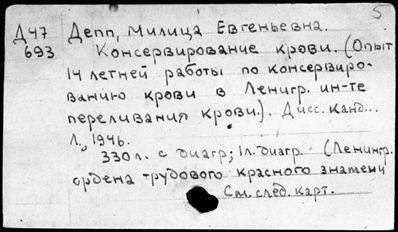 5
Д47 Депп, Милица Евгеньевна.
693 Консервирование крови. (Опыт
14 летней работы по консервиро-
ванию крови в Ленигр. ин-те
переливания крови.). Дисс. канд...
Л., 1946.
330 л. с диагр; 1 л. диагр. (Ленингр.
ордена трудового красного знамени
См. след. карт.